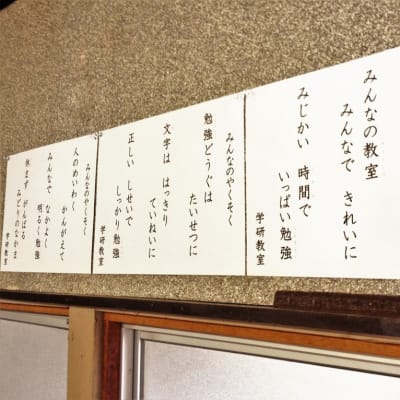 みんなの教室
みんなで きれいに
みじかい 時間で
いっぱい勉強
学研教室
みんなのやくそく
勉強どうぐは
たいせつに
文字は はっきり
ていねいに
正しい しせいで
しっかり勉強
学研教室
みんなのやくそく
人のめいわく
かんがえて
みんなで なかよく
明るく勉強
休まず がんばる
みどりのなかま
学研教室